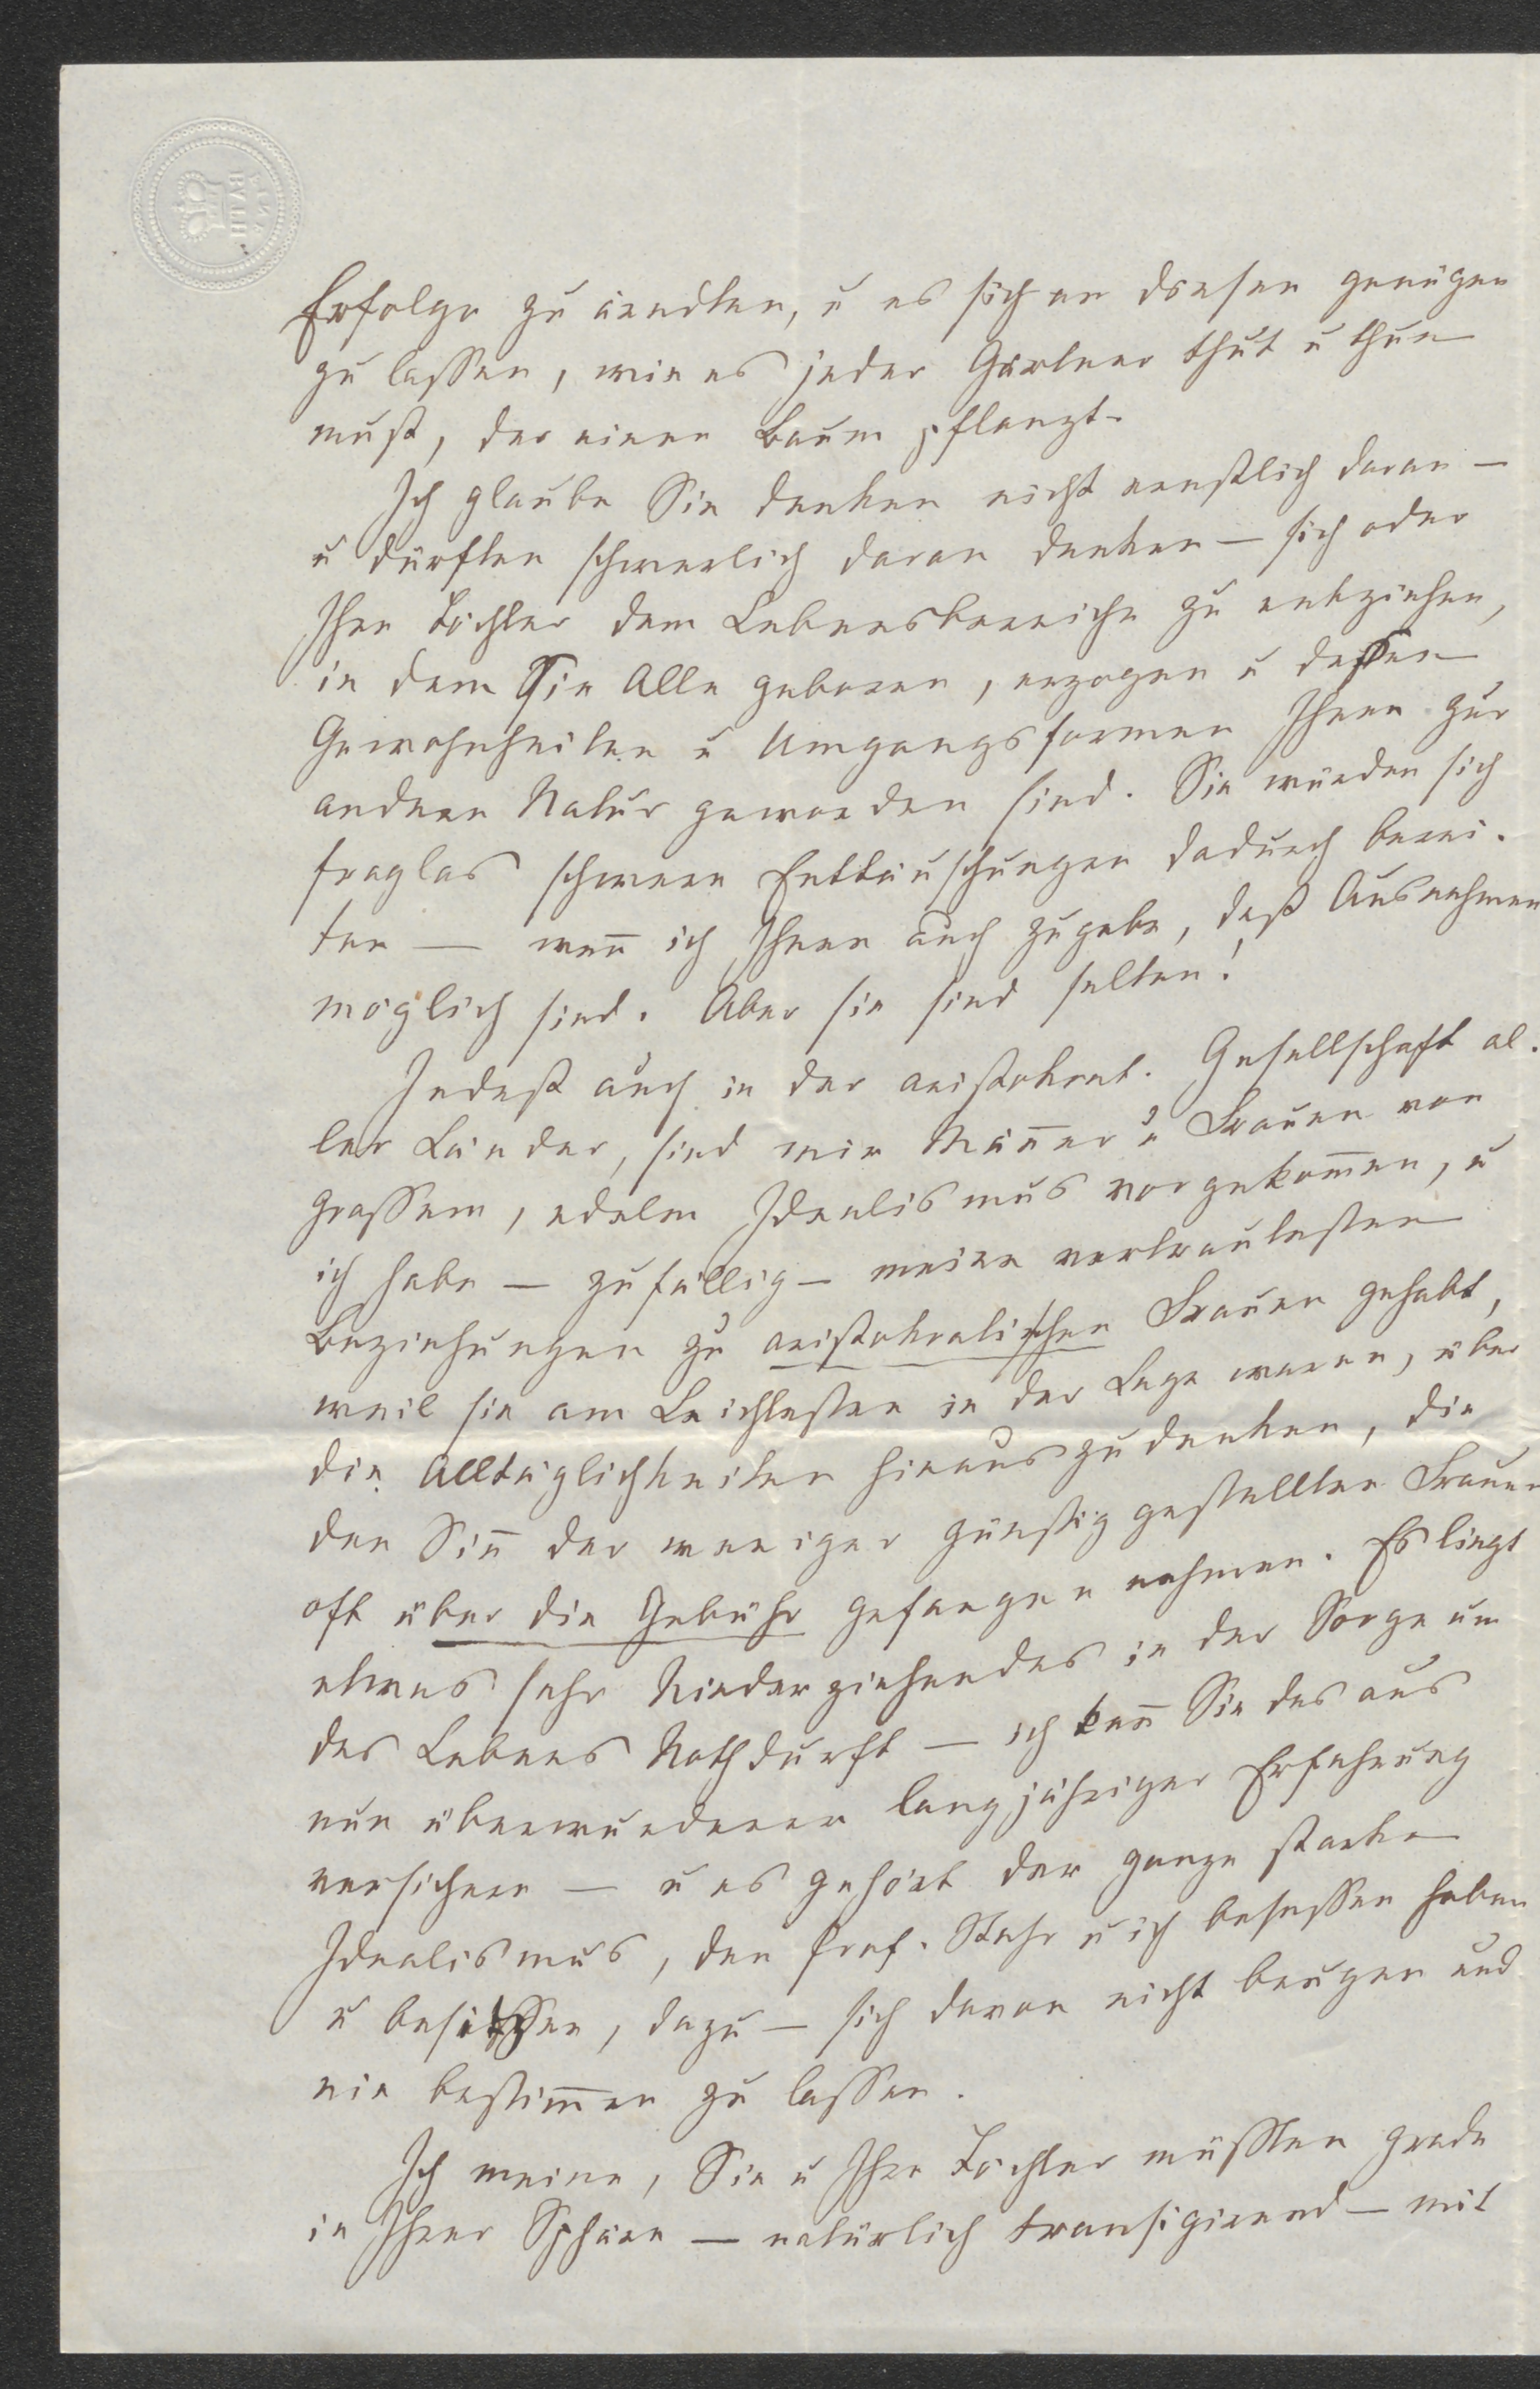 BATH
Erfolge zu ärndten, u es sich an diesen genügen
zu lassen, wie es jeder Gärtner thut u thun
muß, der einen Baum pflanzt.
Ich glaube Sie denken nicht ernstlich daran —
u dürften schwerlich daran denken — sich oder
Ihre Töchter dem Lebensbereiche zu entziehen,
in dem Sie Alle geboren, erzogen u dessen
Gewohnheiten u Umgangsformen Ihnen zur
andren Natur geworden sind. Sie würden sich
fraglos schwere Enttäuschungen dadurch berei-
ten — wen̅ ich Ihnen auch zugebe, daß Ausnahmen
möglich sind. Aber sie sind selten!
Indeß auch in der aristokrat. Gesellschaft al-
ler Länder, sind mir Män̅er u Frauen von
grossem, edelm Idealismus vorgekom̅en, u
ich habe — zufällig — meine vertrautesten
Beziehungen zu aristokratischen Frauen gehabt,
weil sie am Leichtesten in der Lage waren, über
die Alltäglichkeiten hinauszudenken, die
den Sin̅ der weniger günstig gestellten Frauen
oft über die Gebühr gefangen nehmen. Es liegt
etwas sehr Niederziehendes in der Sorge um
des Lebens Nothdurft — ich kan̅ Sie des aus
nun überwundener langjähriger Erfahrung
versichern — u es gehört der ganze starke
Idealismus, den Prof. Stahr u ich besessen haben
u besitzen, dazu — sich davon nicht beugen und
nie bestim̅en zu lassen.
Ich meine, Sie u Ihre Töchter müßten grade
in Ihrer Sphäre — natürlich transigirend — mit